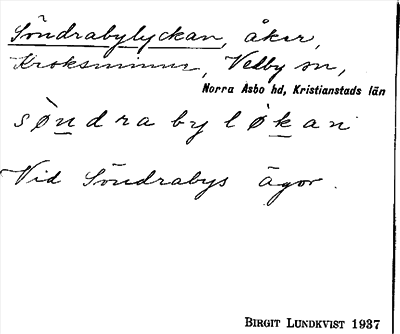 Söndrabylyckan, åker,
Kroksminne, Vedby sn,
Norra Åsbo hd, Kristianstads län
sø̀ndrabyløkan
Vid Söndrabys ägor.
BIRGIT LUNDKVIST 1937